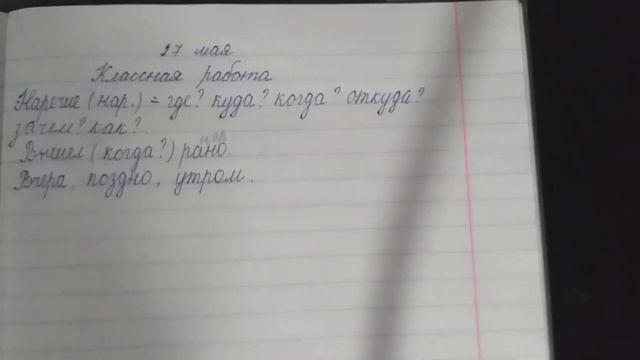 27 мая
Классная работа
Наречие (нар.) = где? куда? когда? откуда?
зачем? как?
нар.
Вышел (когда?) рано.
Вчера, поздно, утром.